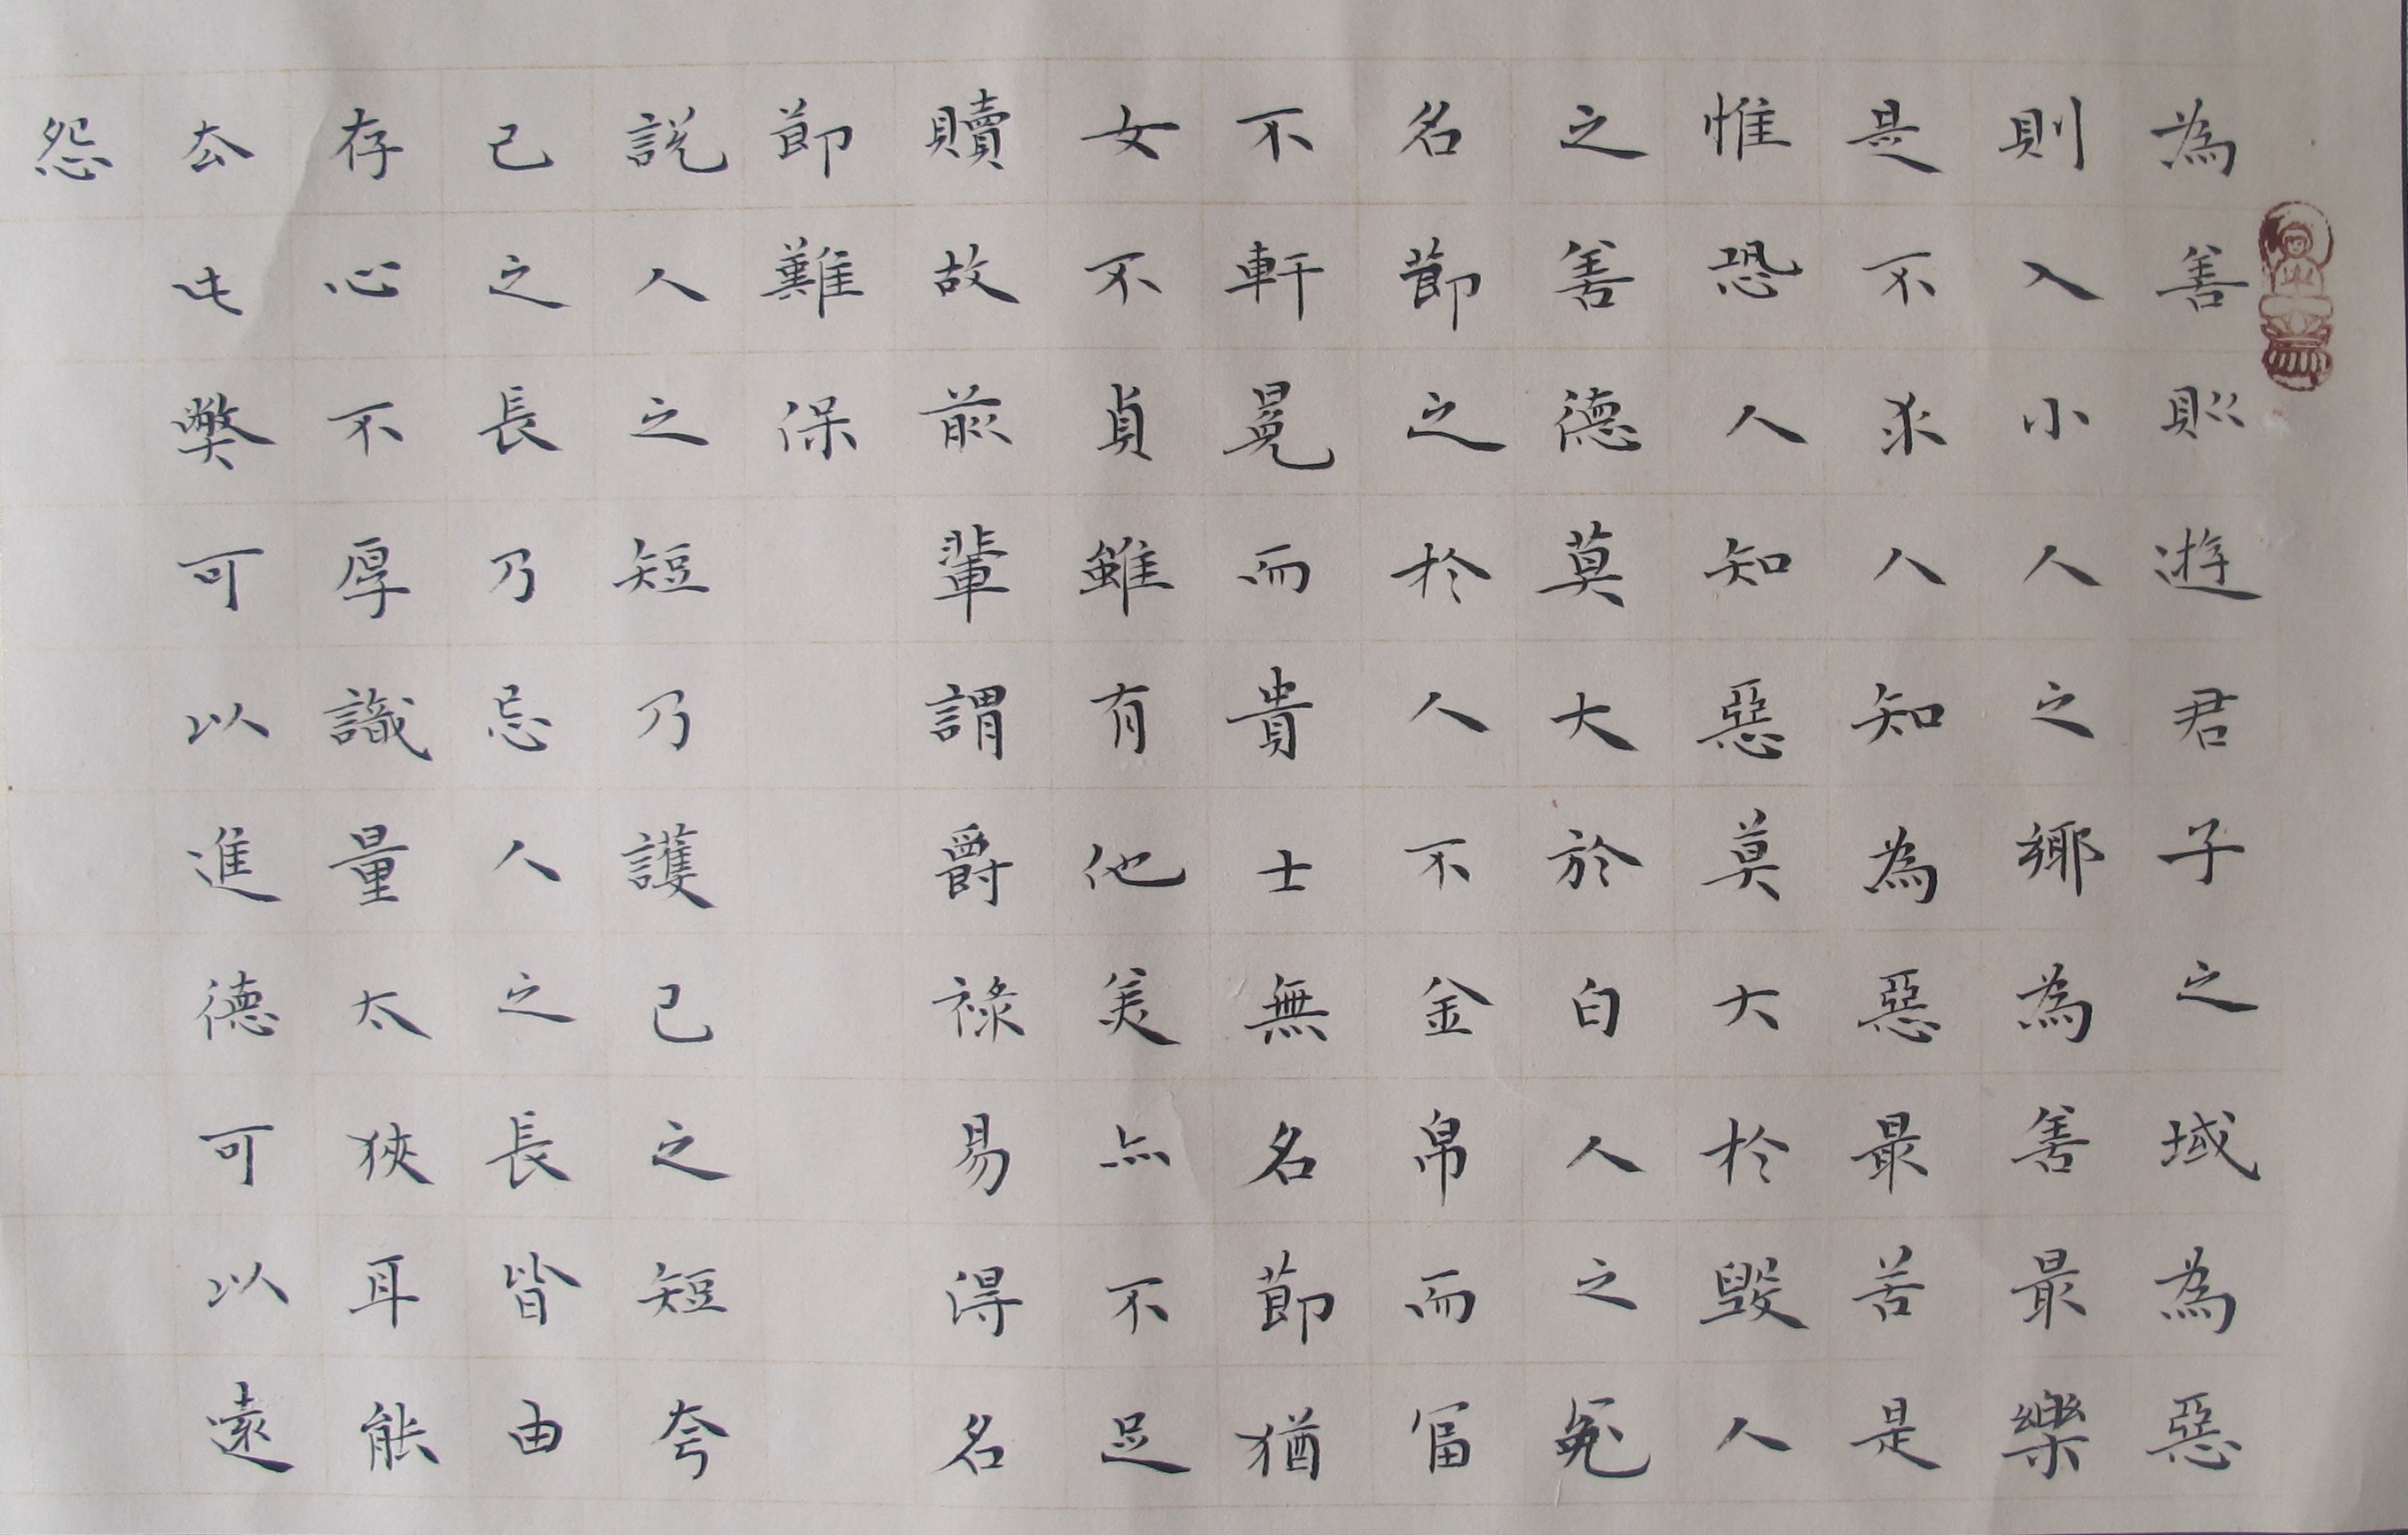 為善則遊君子之域為惡
則入小人之鄉為善最樂
是不求人知為惡最苦是
惟恐人知惡莫大於毀人
之善德莫大於白人之冤
名節之於人不金帛而富
不軒冕而貴士無名節猶
女不貞雖有他美亦不足
贖故前輩謂爵祿易得名
節難保
說人之短乃護己之短夸
己之長乃忌人之長皆由
存心不厚識量太狹耳能
去此弊可以進德可以遠
怨